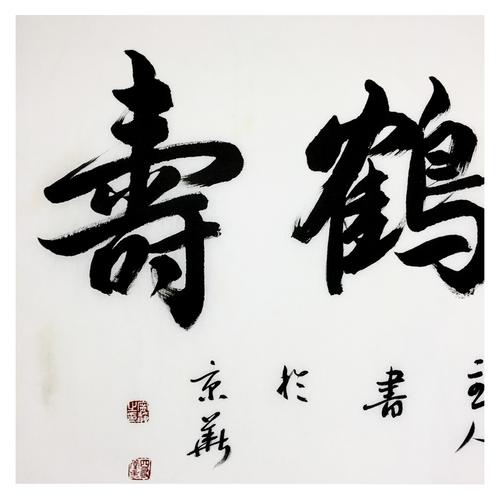 鶴壽
主人
書
於
京華